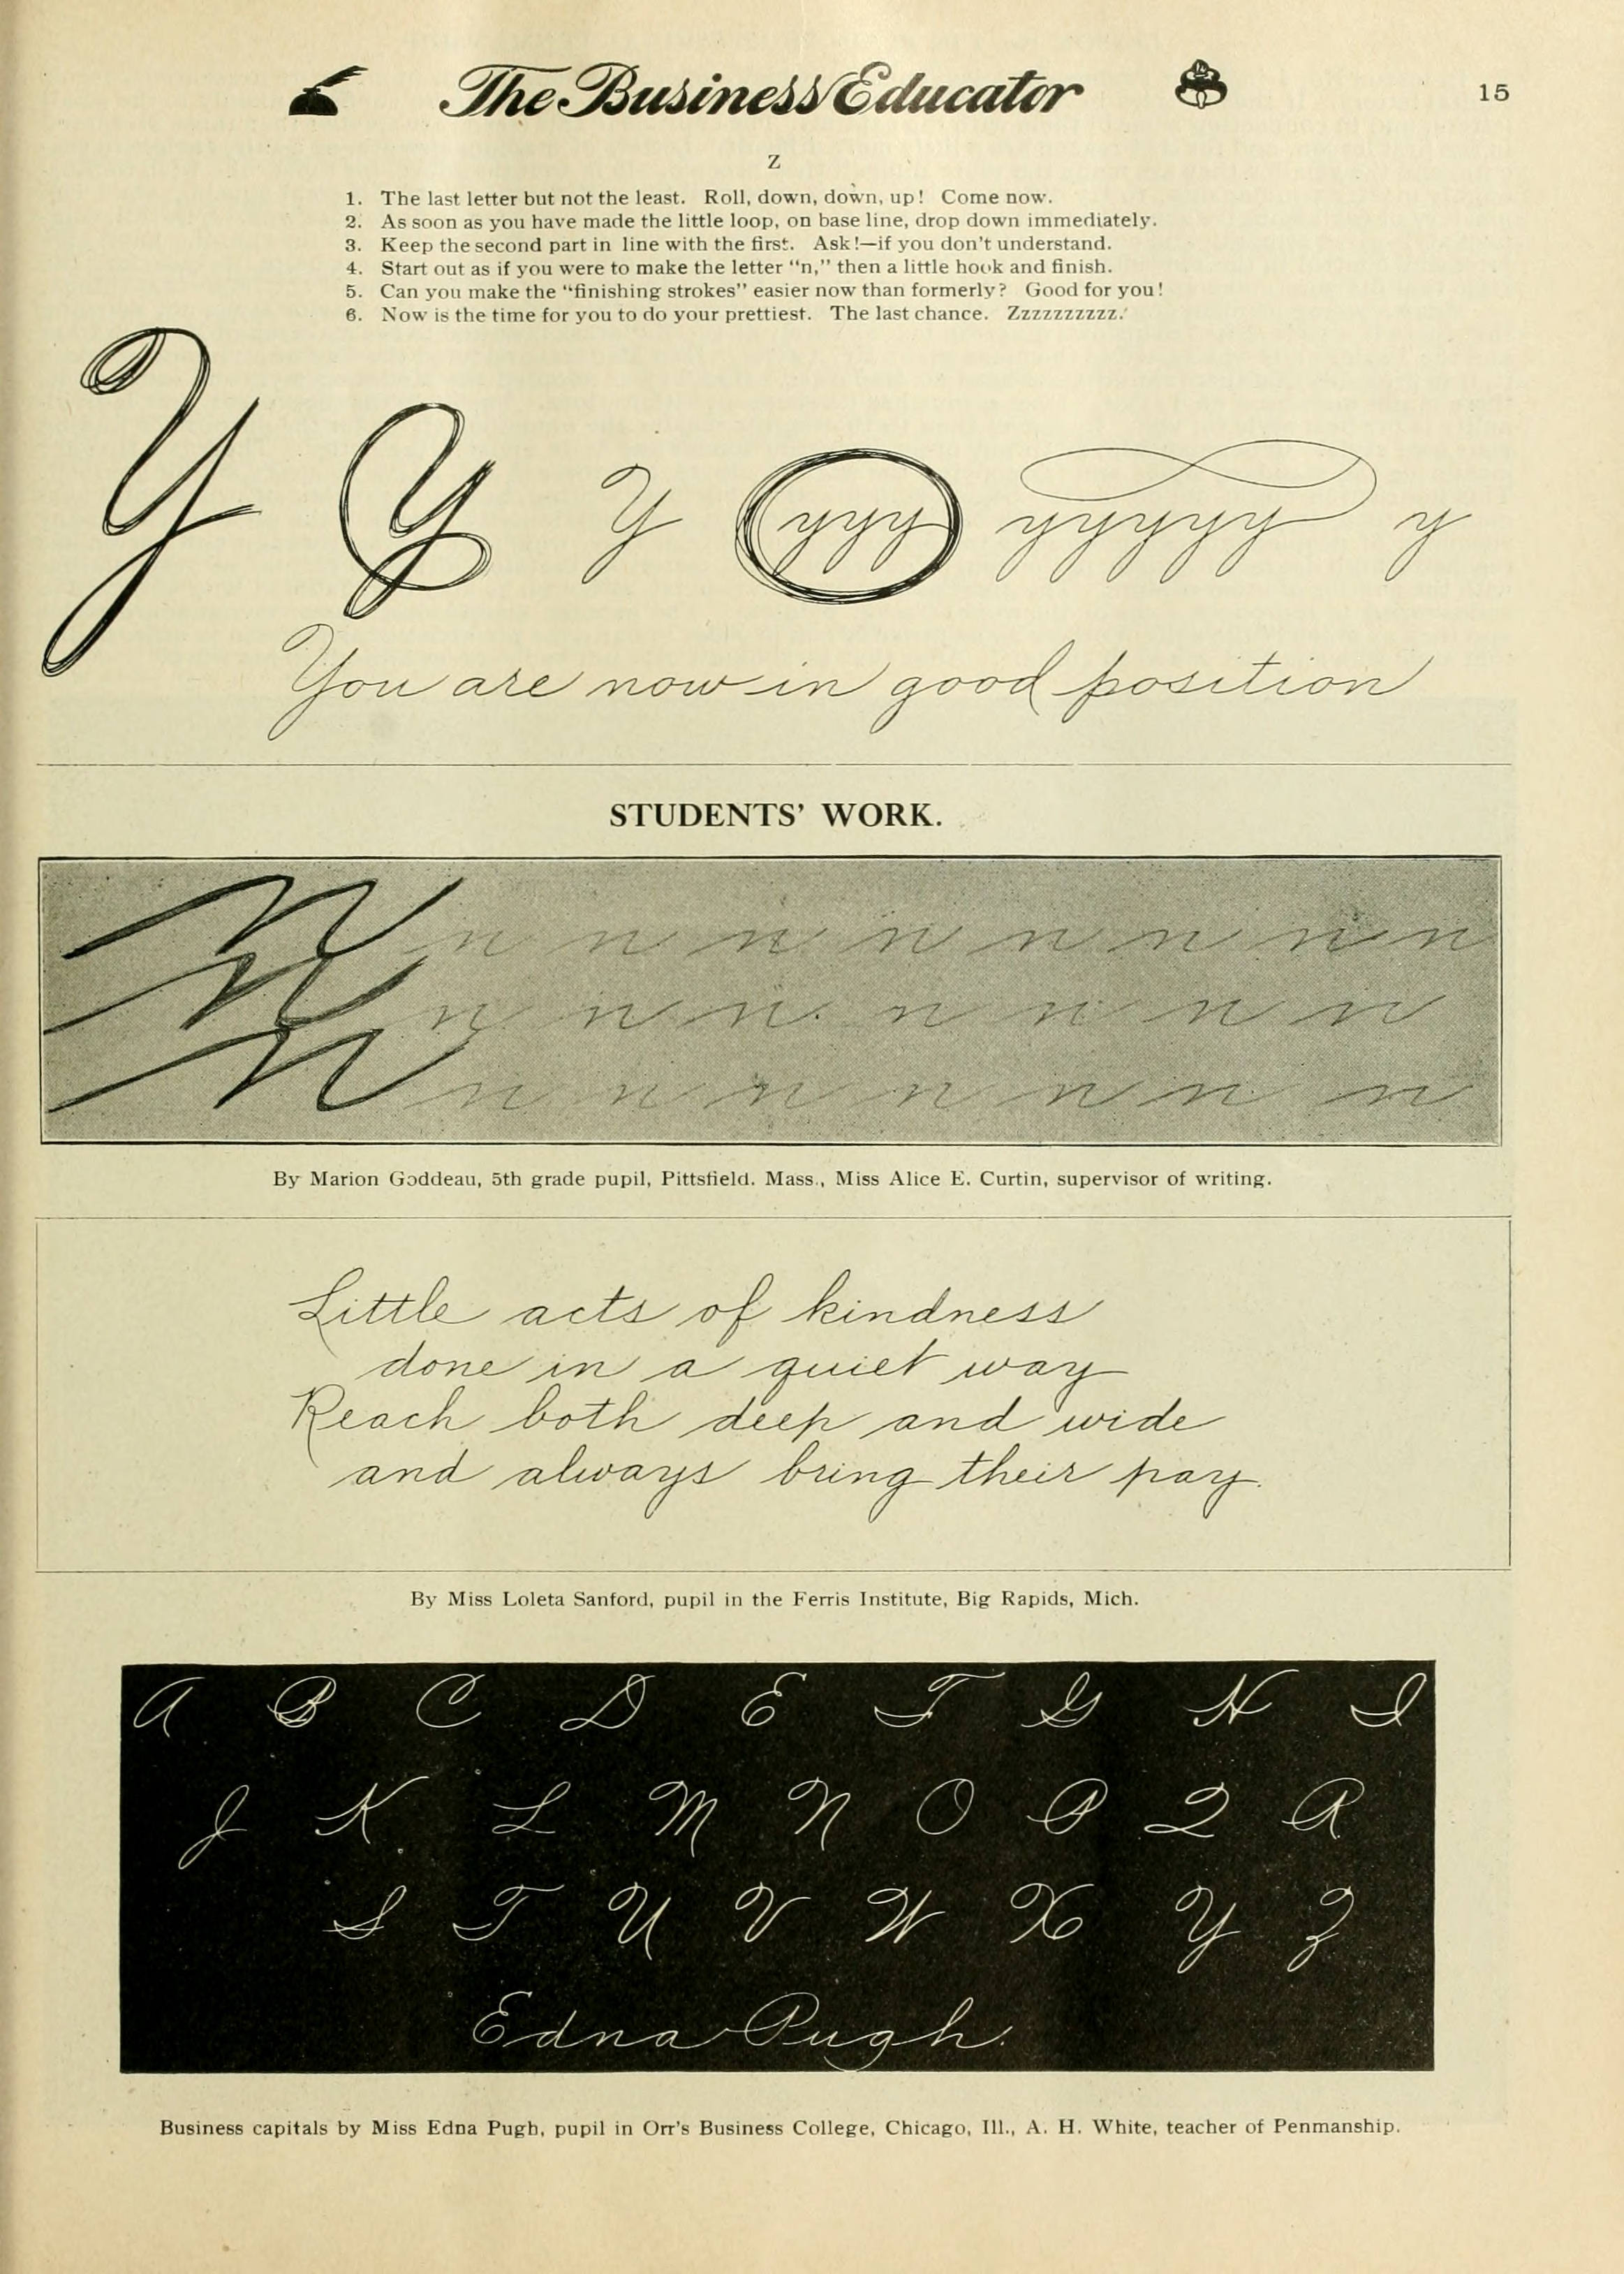 The Business Educator
15
Z
1. The last letter but not the least. Roll, down, down, up! Come now.
2. As soon as you have made the little loop, on base line, drop down immediately.
3. Keep the second part in line with the first. Ask!—if you don't understand.
4. Start out as if you were to make the letter "n," then a little hook and finish.
5. Can you make the "finishing strokes" easier now than formerly? Good for you!
6. Now is the time for you to do your prettiest. The last chance. Zzzzzzzzzz.
Y Y Y yyy yyyyy y
You are now in good position
STUDENTS' WORK.
n n n n n n n n n
n n n n n n n n
n n n n n n n n
By Marion Goddeau, 5th grade pupil, Pittsfield. Mass., Miss Alice E. Curtin, supervisor of writing.
Little acts of kindness
done in a quiet way
Reach both deep and wide
and always bring their pay.
By Miss Loleta Sanford, pupil in the Ferris Institute, Big Rapids, Mich.
A B C D E F G H I
J K L M N O P Q R
S T U V W X Y Z
Edna Pugh.
Business capitals by Miss Edna Pugh, pupil in Orr's Business College, Chicago, Ill., A. H. White, teacher of Penmanship.